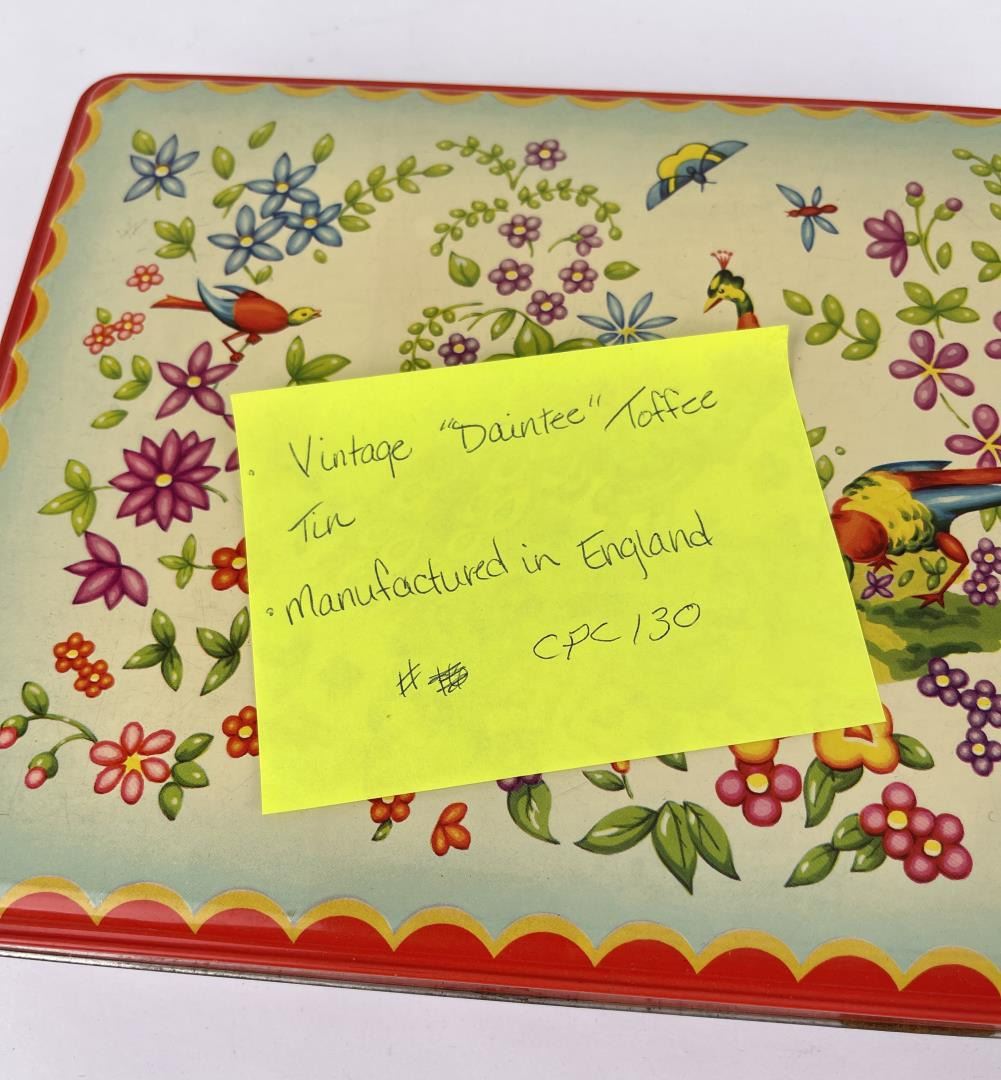 • Vintage "Daintee" Toffee
Tin
• Manufactured in England
# CPC130